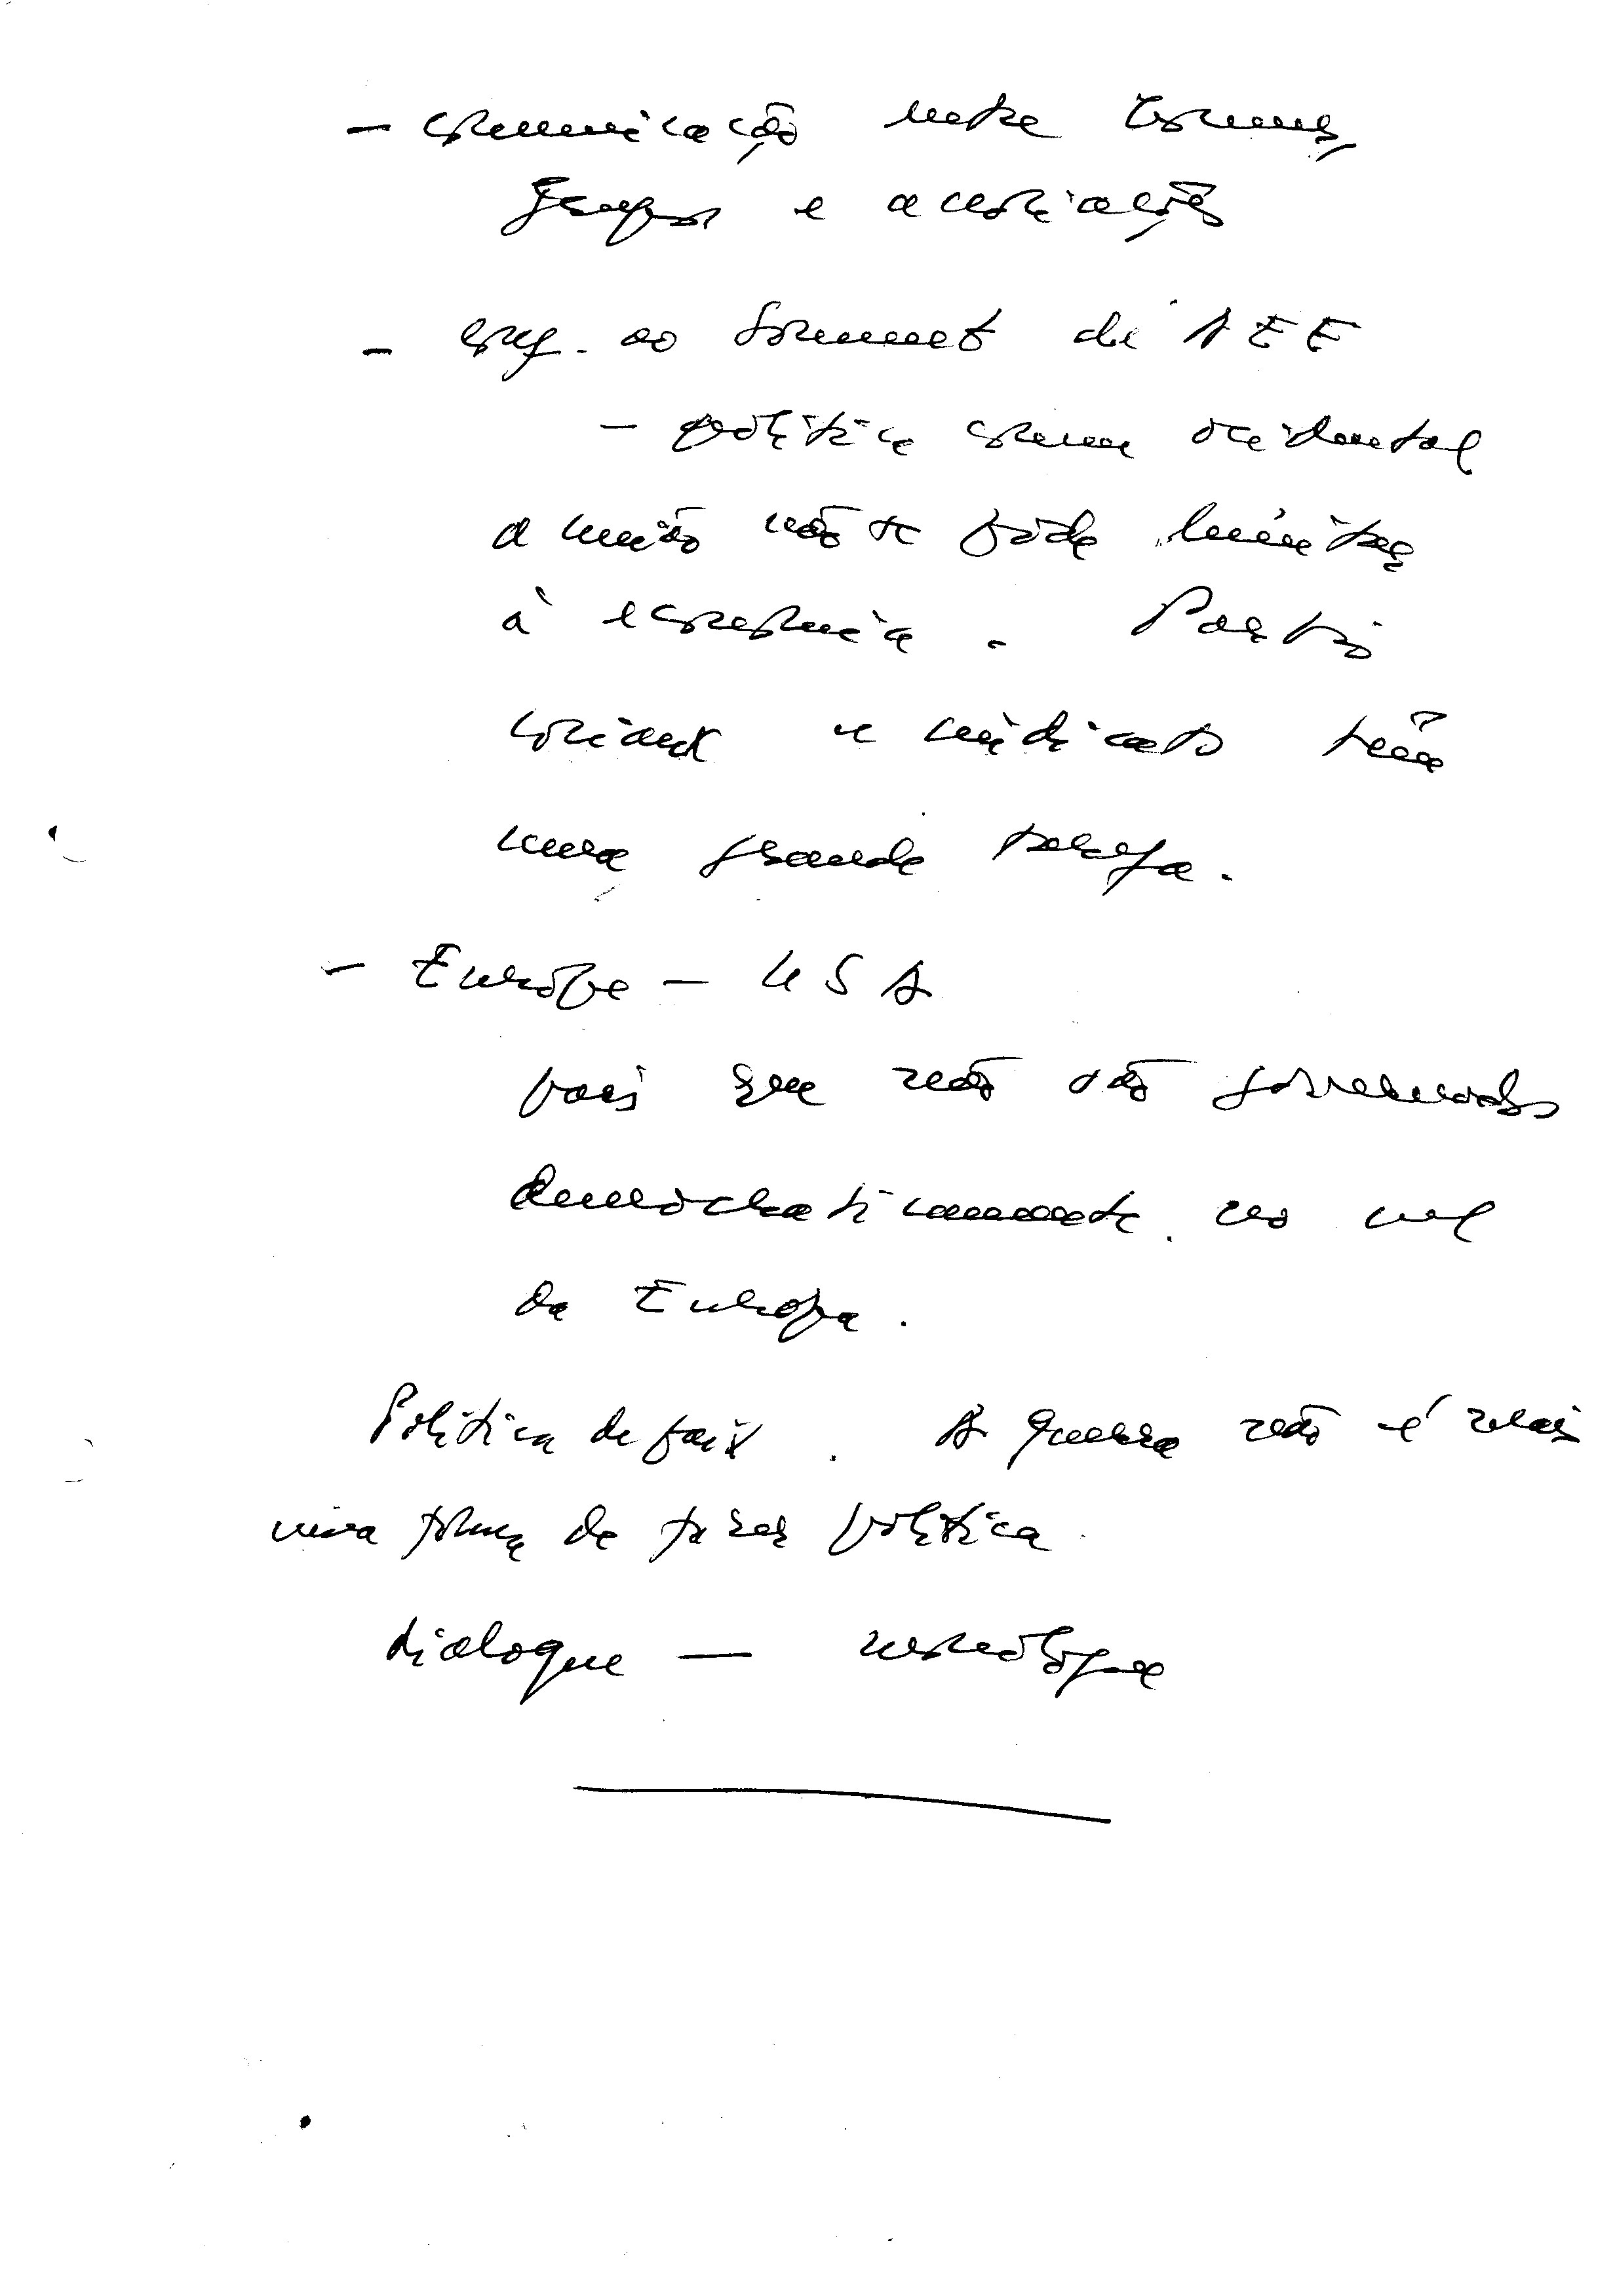 - comunicação entre comunas,
grupos e associações
- ao sommet de AEE
- política comum ocidental
a união não se pode limitar
à economia. Partidos
e sindicatos têm
uma grande tarefa.
- Europa - USA
país que não são governados
democraticamente. no sul
da Europa.
Política de paix. A guerra não é mais
uma forma de fazer política
dialogue — monologue